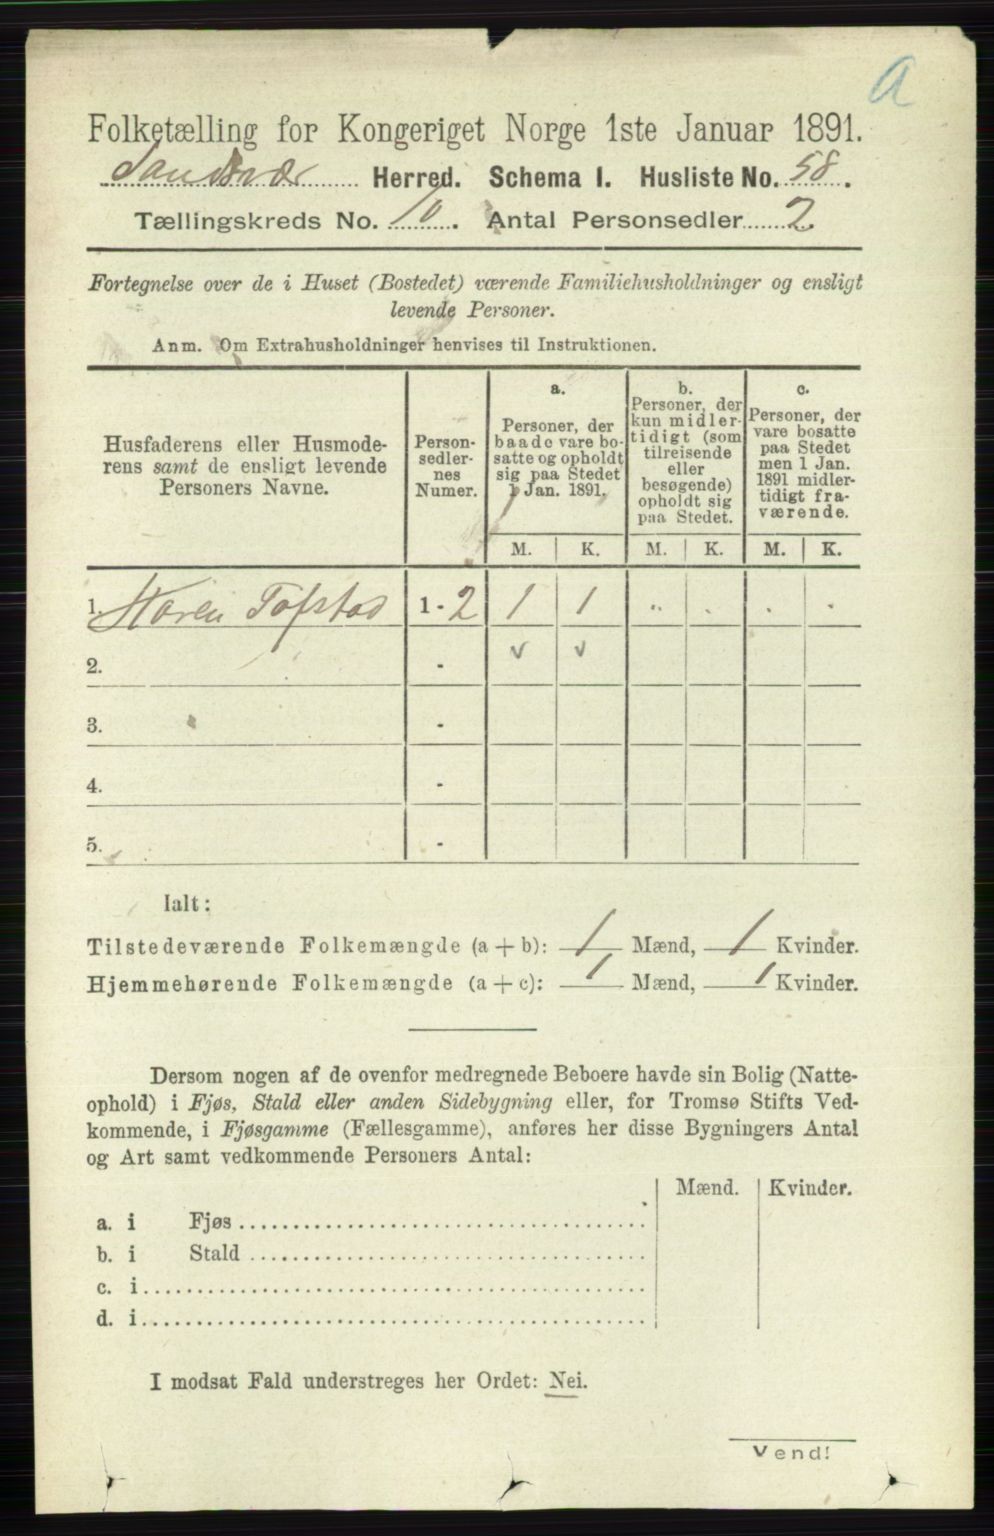 a
Folketælling for Kongeriget Norge 1ste Januar 1891.
Sandsvær Herred. Schema I. Husliste No. 58.
Tællingskreds No. 10. Antal Personsedler 2
Fortegnelse over de i Huset (Bostedet) værende Familiehusholdninger og ensligt
levende Personer.
Anm. Om Extrahusholdninger henvises til Instruktionen.
Husfaderens eller Husmode-
rens samt de ensligt levende
Personers Navne.
Person-
sedler-
nes
Numer.
a.
Personer, der
baade vare bo-
satte og opholdt
sig paa Stedet
1 Jan. 1891.
b.
Personer, der
kun midler-
tidigt (som
tilreisende
eller
besøgende)
opholdt sig
paa Stedet.
c.
Personer, der
vare bosatte
paa Stedet
men 1 Jan.
1891 midler-
tidigt fra-
værende.
M. K. M. K. M. K.
1. Karen Tofstad 1 - 2 1 1 " . . .
2. - v v
3. -
4. -
5. -
Ialt:
Tilstedeværende Folkemængde (a + b): 1 Mænd, 1 Kvinder.
Hjemmehørende Folkemængde (a + c): 1 Mænd, 1 Kvinder.
Dersom nogen af de ovenfor medregnede Beboere havde sin Bolig (Natte-
ophold) i Fjøs, Stald eller anden Sidebygning eller, for Tromsø Stifts Ved-
kommende, i Fjøsgamme (Fællesgamme), anføres her disse Bygningers Antal
og Art samt vedkommende Personers Antal:
Mænd. Kvinder.
a. i Fjøs
b. i Stald
c. i
d. i
I modsat Fald understreges her Ordet: Nei.
Vend!